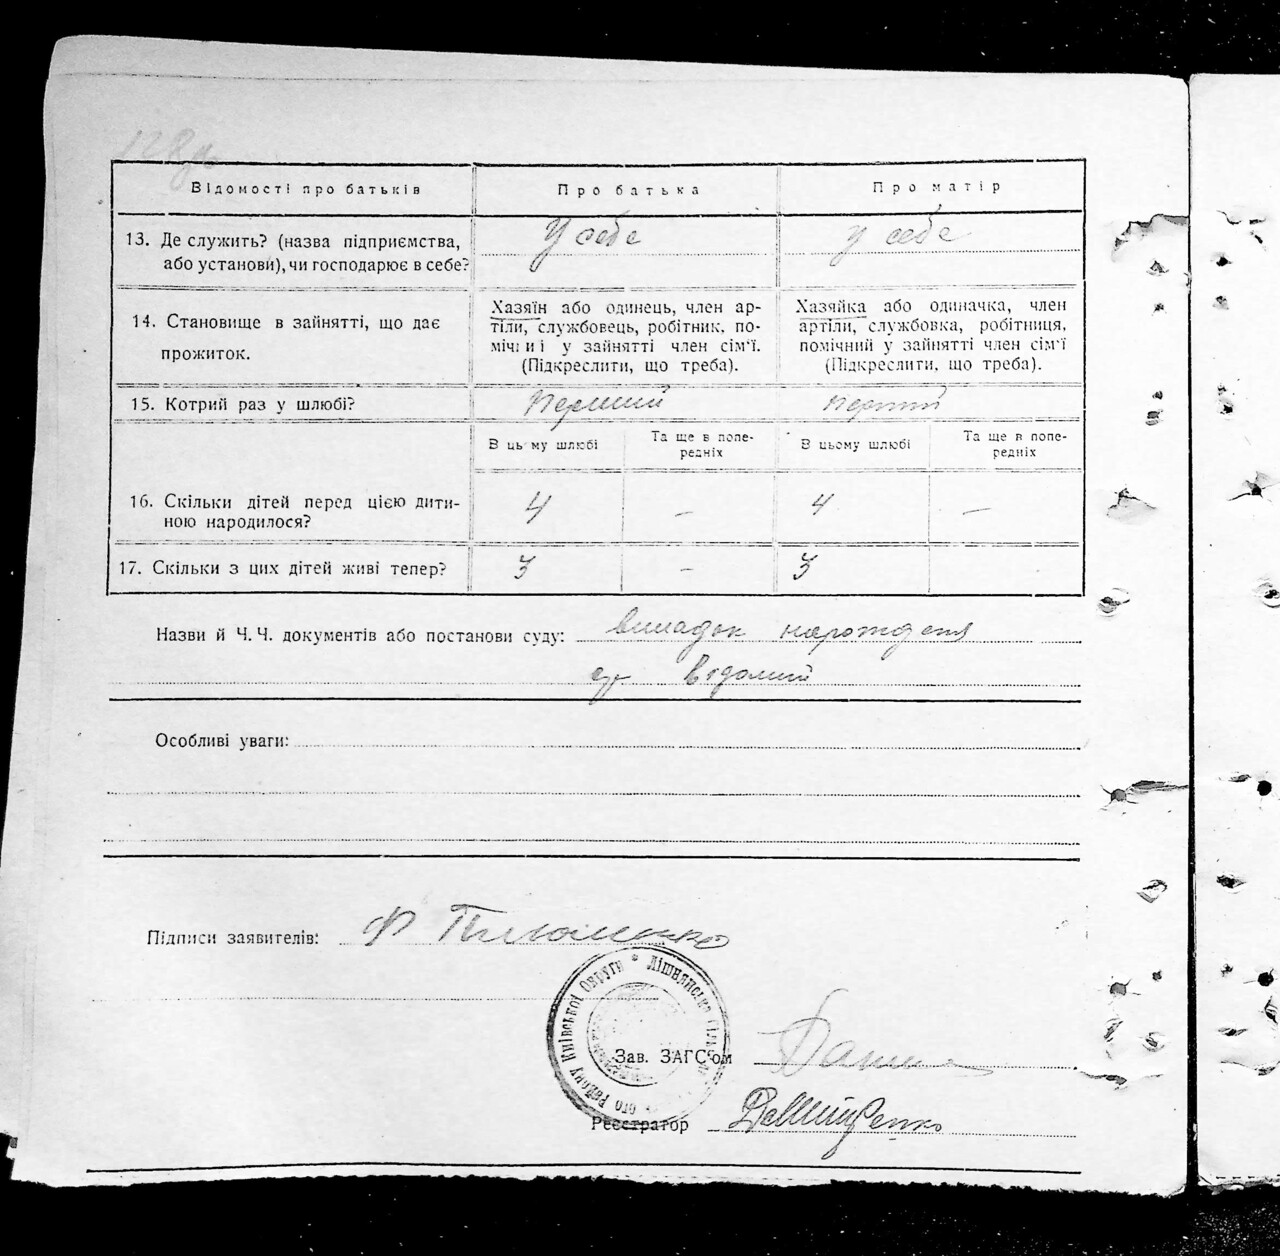 Відомості про батьків
Про батька
Про матір
13. Де служить? (назва підприємства, або установи), чи господарює в себе?
У себе
у себе
14. Становище в зайнятті, що дає прожиток.
Хазяїн або одинець, член ар-
тіли, службовець, робітник, по-
мічний у зайнятті член сім'ї.
(Підкреслити, що треба).
Хазяйка або одиначка, член
артіли, службовка, робітниця,
помічний у зайнятті член сім'ї
(Підкреслити, що треба).
15. Котрий раз у шлюбі?
Перший
перший
В цьому шлюбі
Та ще в попе-
редніх
В цьому шлюбі
Та ще в попе-
редніх
16. Скільки дітей перед цією дити-
ною народилося?
4
–
4
–
17. Скільки з цих дітей живі тепер?
3
–
3
Назви й Ч.Ч. документів або постанови суду: випадок нарождення
відомий
Особливі уваги:
Підписи заявителів: Ф
Київської Округи * Лішнянська
ого Району
Зав. ЗАГС'ом
Реєстратор